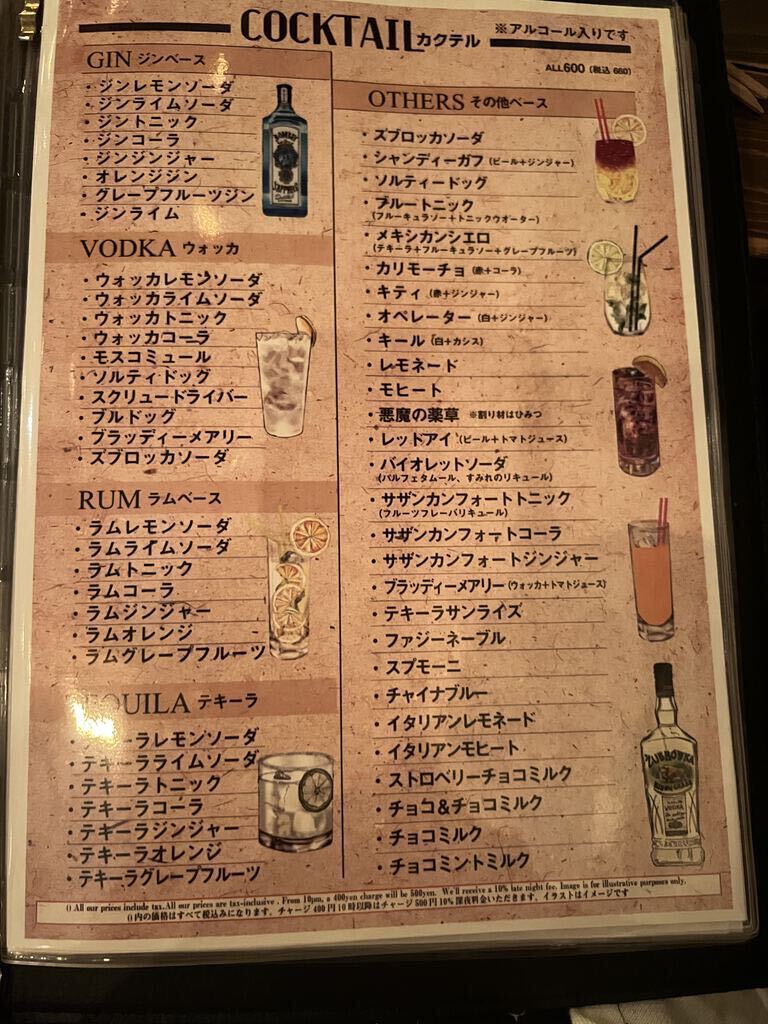 COCKTAIL カクテル
※アルコール入りです
ALL600 (税込 660)
GIN ジンベース
・ジンレモンソーダ
・ジンライムソーダ
・ジントニック
・ジンコーラ
・ジンジンジャー
・オレンジジン
・グレープフルーツジン
・ジンライム
VODKA ウォッカ
・ウォッカレモンソーダ
・ウォッカライムソーダ
・ウォッカトニック
・ウォッカコーラ
・モスコミュール
・ソルティドッグ
・スクリュードライバー
・ブルドッグ
・ブラッディーメアリー
・ズブロッカソーダ
RUM ラムベース
・ラムレモンソーダ
・ラムライムソーダ
・ラムトニック
・ラムコーラ
・ラムジンジャー
・ラムオレンジ
・ラムグレープフルーツ
TEQUILA テキーラ
・テキーラレモンソーダ
・テキーラライムソーダ
・テキーラトニック
・テキーラコーラ
・テキーラジンジャー
・テキーラオレンジ
・テキーラグレープフルーツ
OTHERS その他ベース
・ズブロッカソーダ
・シャンディーガフ (ビール+ジンジャー)
・ソルティードッグ
・ブルートニック
(ブルーキュラソー+トニックウオーター)
・メキシカンシエロ
(テキーラ+ブルーキュラソー+グレープフルーツ)
・カリモーチョ (赤+コーラ)
・キティ (赤+ジンジャー)
・オペレーター (白+ジンジャー)
・キール (白+カシス)
・レモネード
・モヒート
・悪魔の薬草 ※割り材はひみつ
・レッドアイ (ビール+トマトジュース)
・バイオレットソーダ
(パルフェタムール、すみれのリキュール)
・サザンカンフォートトニック
(フルーツフレーバリキュール)
・サザンカンフォートコーラ
・サザンカンフォートジンジャー
・ブラッディーメアリー (ウォッカ+トマトジュース)
・テキーラサンライズ
・ファジーネーブル
・スプモーニ
・チャイナブルー
・イタリアンレモネード
・イタリアンモヒート
・ストロベリーチョコミルク
・チョコ&チョコミルク
・チョコミルク
・チョコミントミルク
BOMBAY
SAPPHIRE
ZUBROWKA
VODKA
() All our prices include tax.All our prices are tax-inclusive . From 10pm, a 400yen charge will be 500yen. We'll receive a 10% late night fee. Image is for illustrative purposes only.
()内の価格はすべて税込みになります。チャージ 400円10時以降はチャージ500円10%深夜料金いただきます。イラストはイメージです